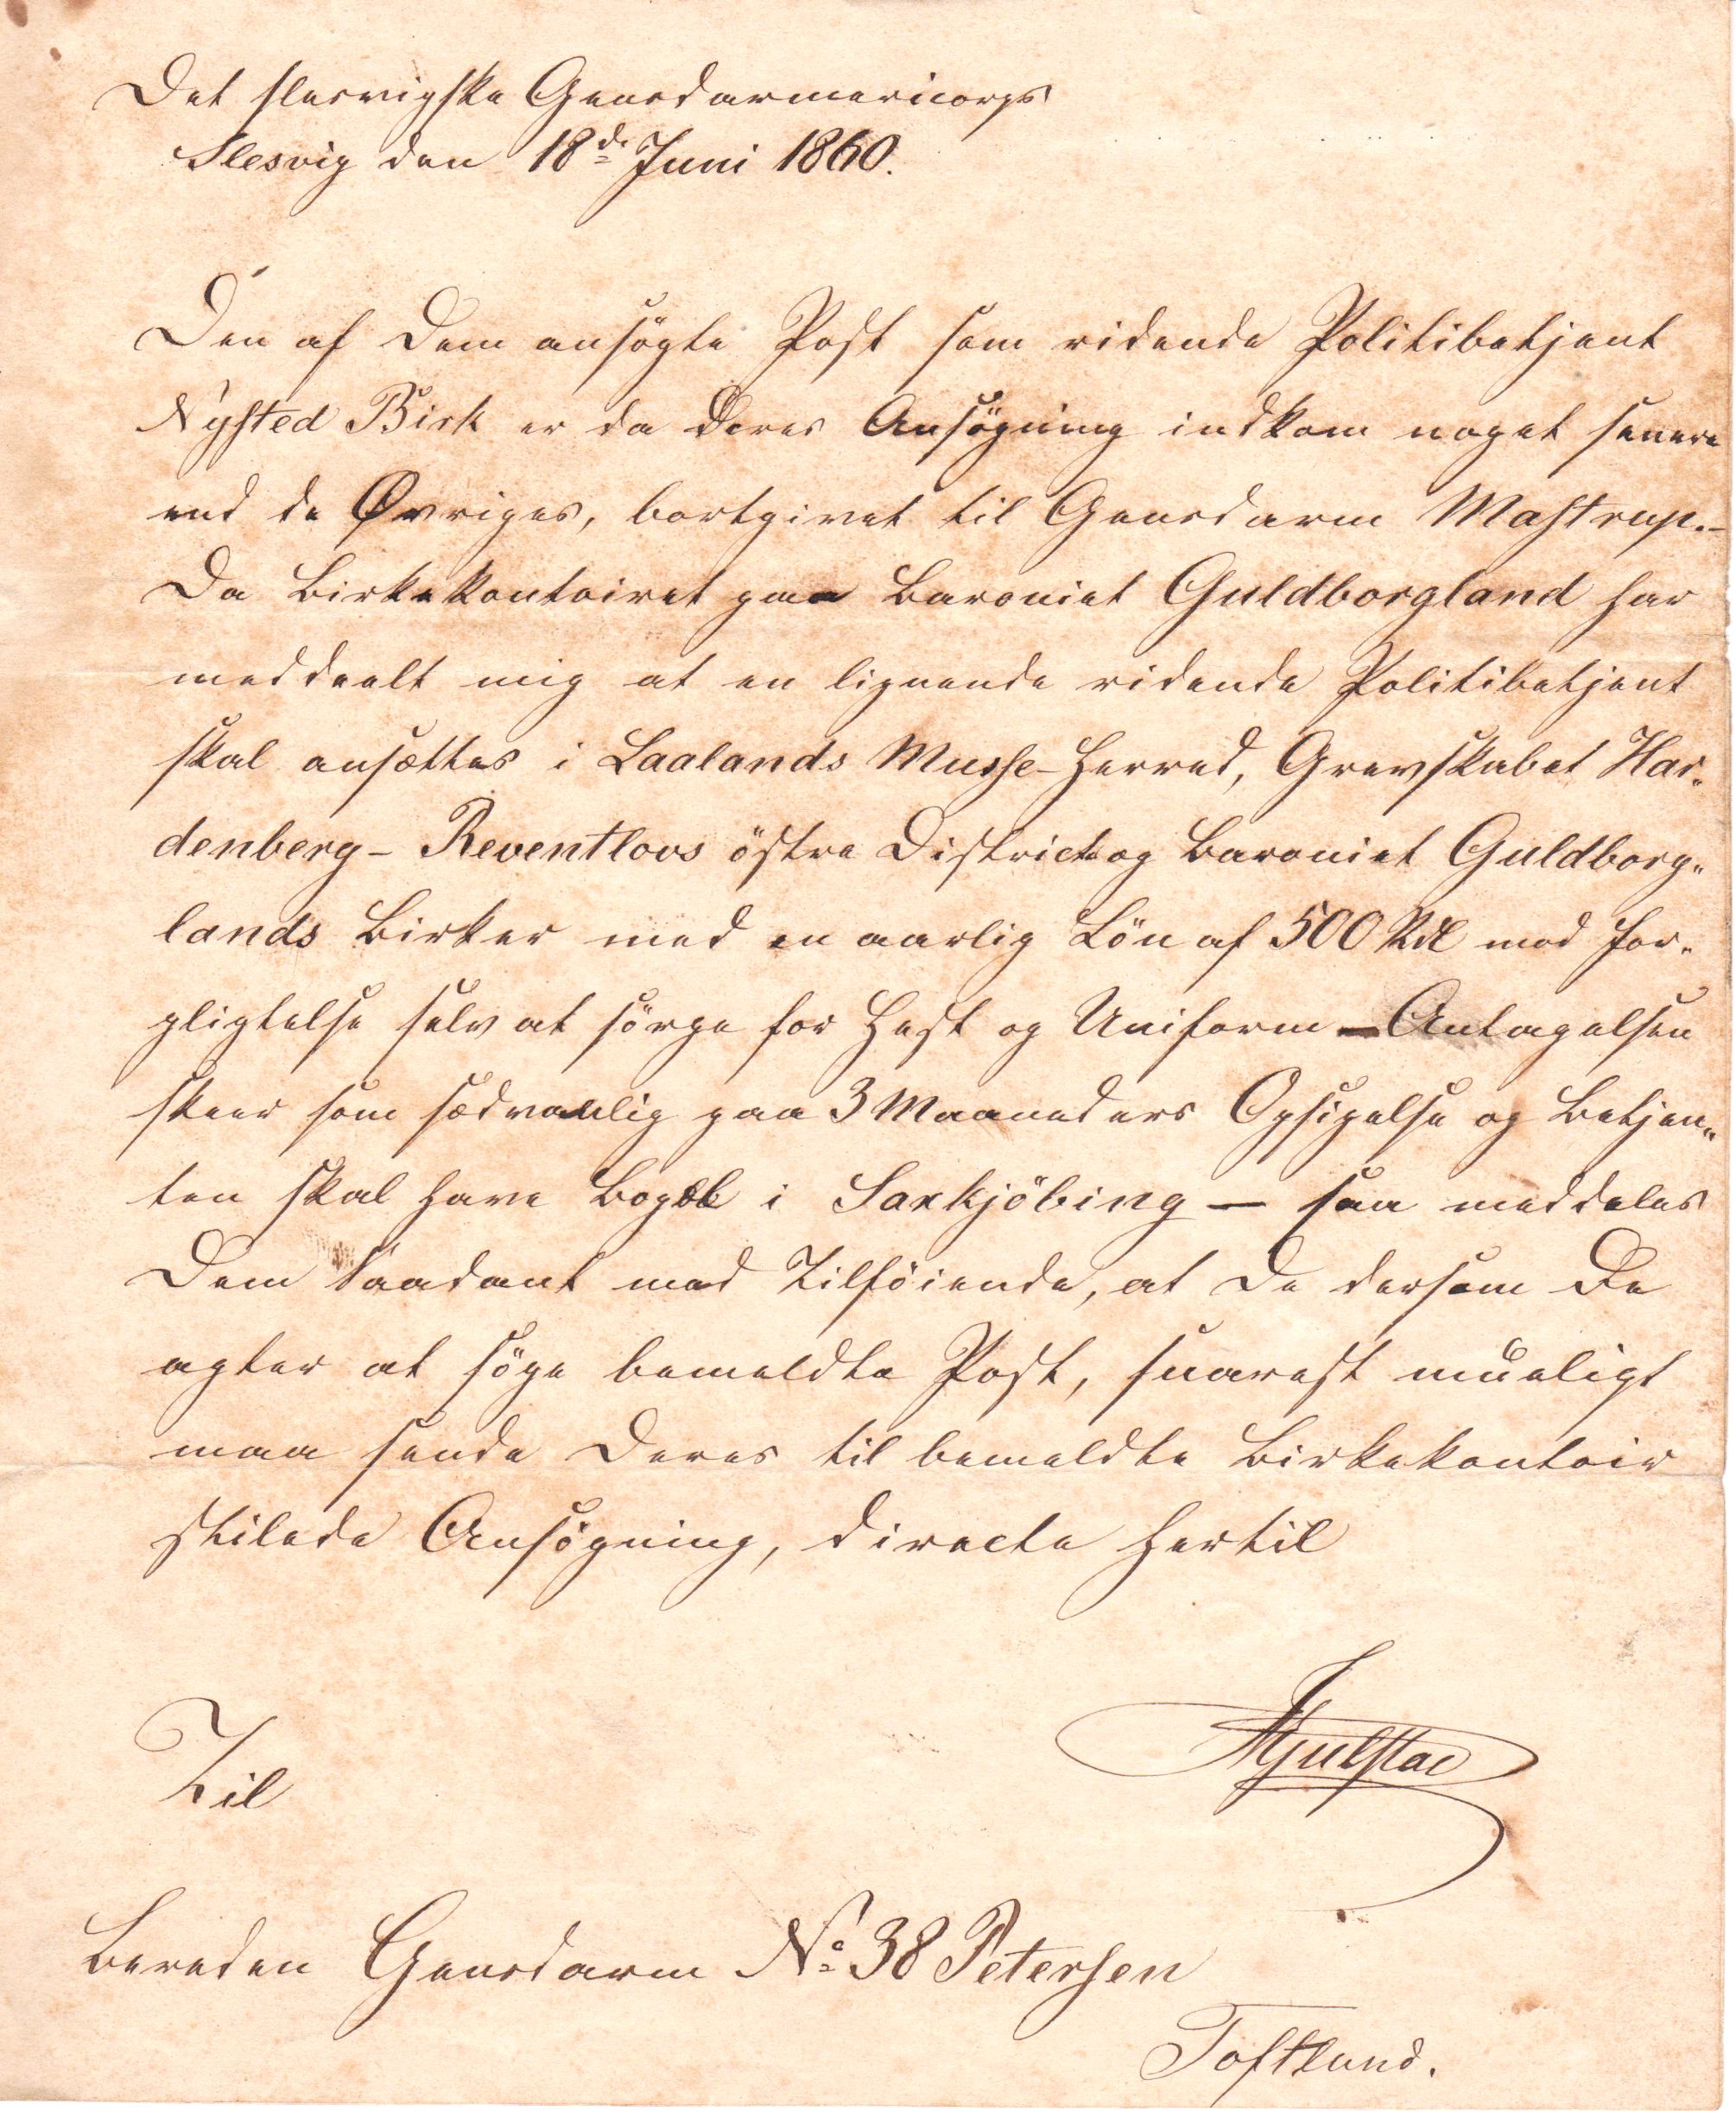 Det slesvigske Gensdarmericorps
Slesvig den 18de Juni 1860.
Den af Dem ansögte Post som ridende Politibetjent
Nysted Birk er da Deres Ansögning indkom noget senere
end de Øvriges, bortgivet til Gensdarm Mastrup.-
Da Birkekontoiret paa Baroniet Guldborgland har
meddeelt mig at en lignende ridende Politibetjent
skal ansættes i Laalands Musse-Herred, Grevskabet Har-
denberg-Reventlovs östre District og Baroniet Guldborg-
lands Birker med en aarlig Lön af 500 Rdl mod For-
pligtelse selv at sörge for Hest og Uniform - Antagelsen
skeer som sædvanlig paa 3 Maaneders Opsigelse og Betjen-
ten skal have Bopæl i Saxkjöbing - saa meddeles
Dem Saadant med Tilföiende, at De dersom De
agter at söge bemeldte Post, snarest mueligt
maa sende Deres til bemeldte Birkekontoir
stilede Ansögning, directe hertil
Til
Bereden Gensdarm No 38 Petersen
Toftlund.